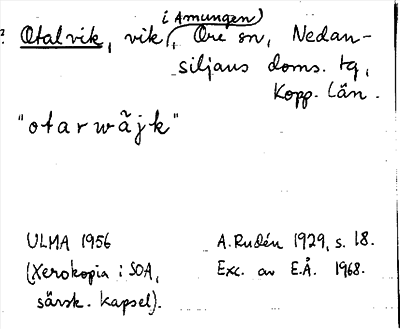 ? Otalvik, vik (i Amungen), Ore sn, Nedan-
siljans doms. tg,
Kopp. län.
"otarwãjk"
ULMA 1956
(Xerokopia i SOA,
särsk. kapsel).
A. Rudén 1929, s. 18.
Exc. av E.Å. 1968.